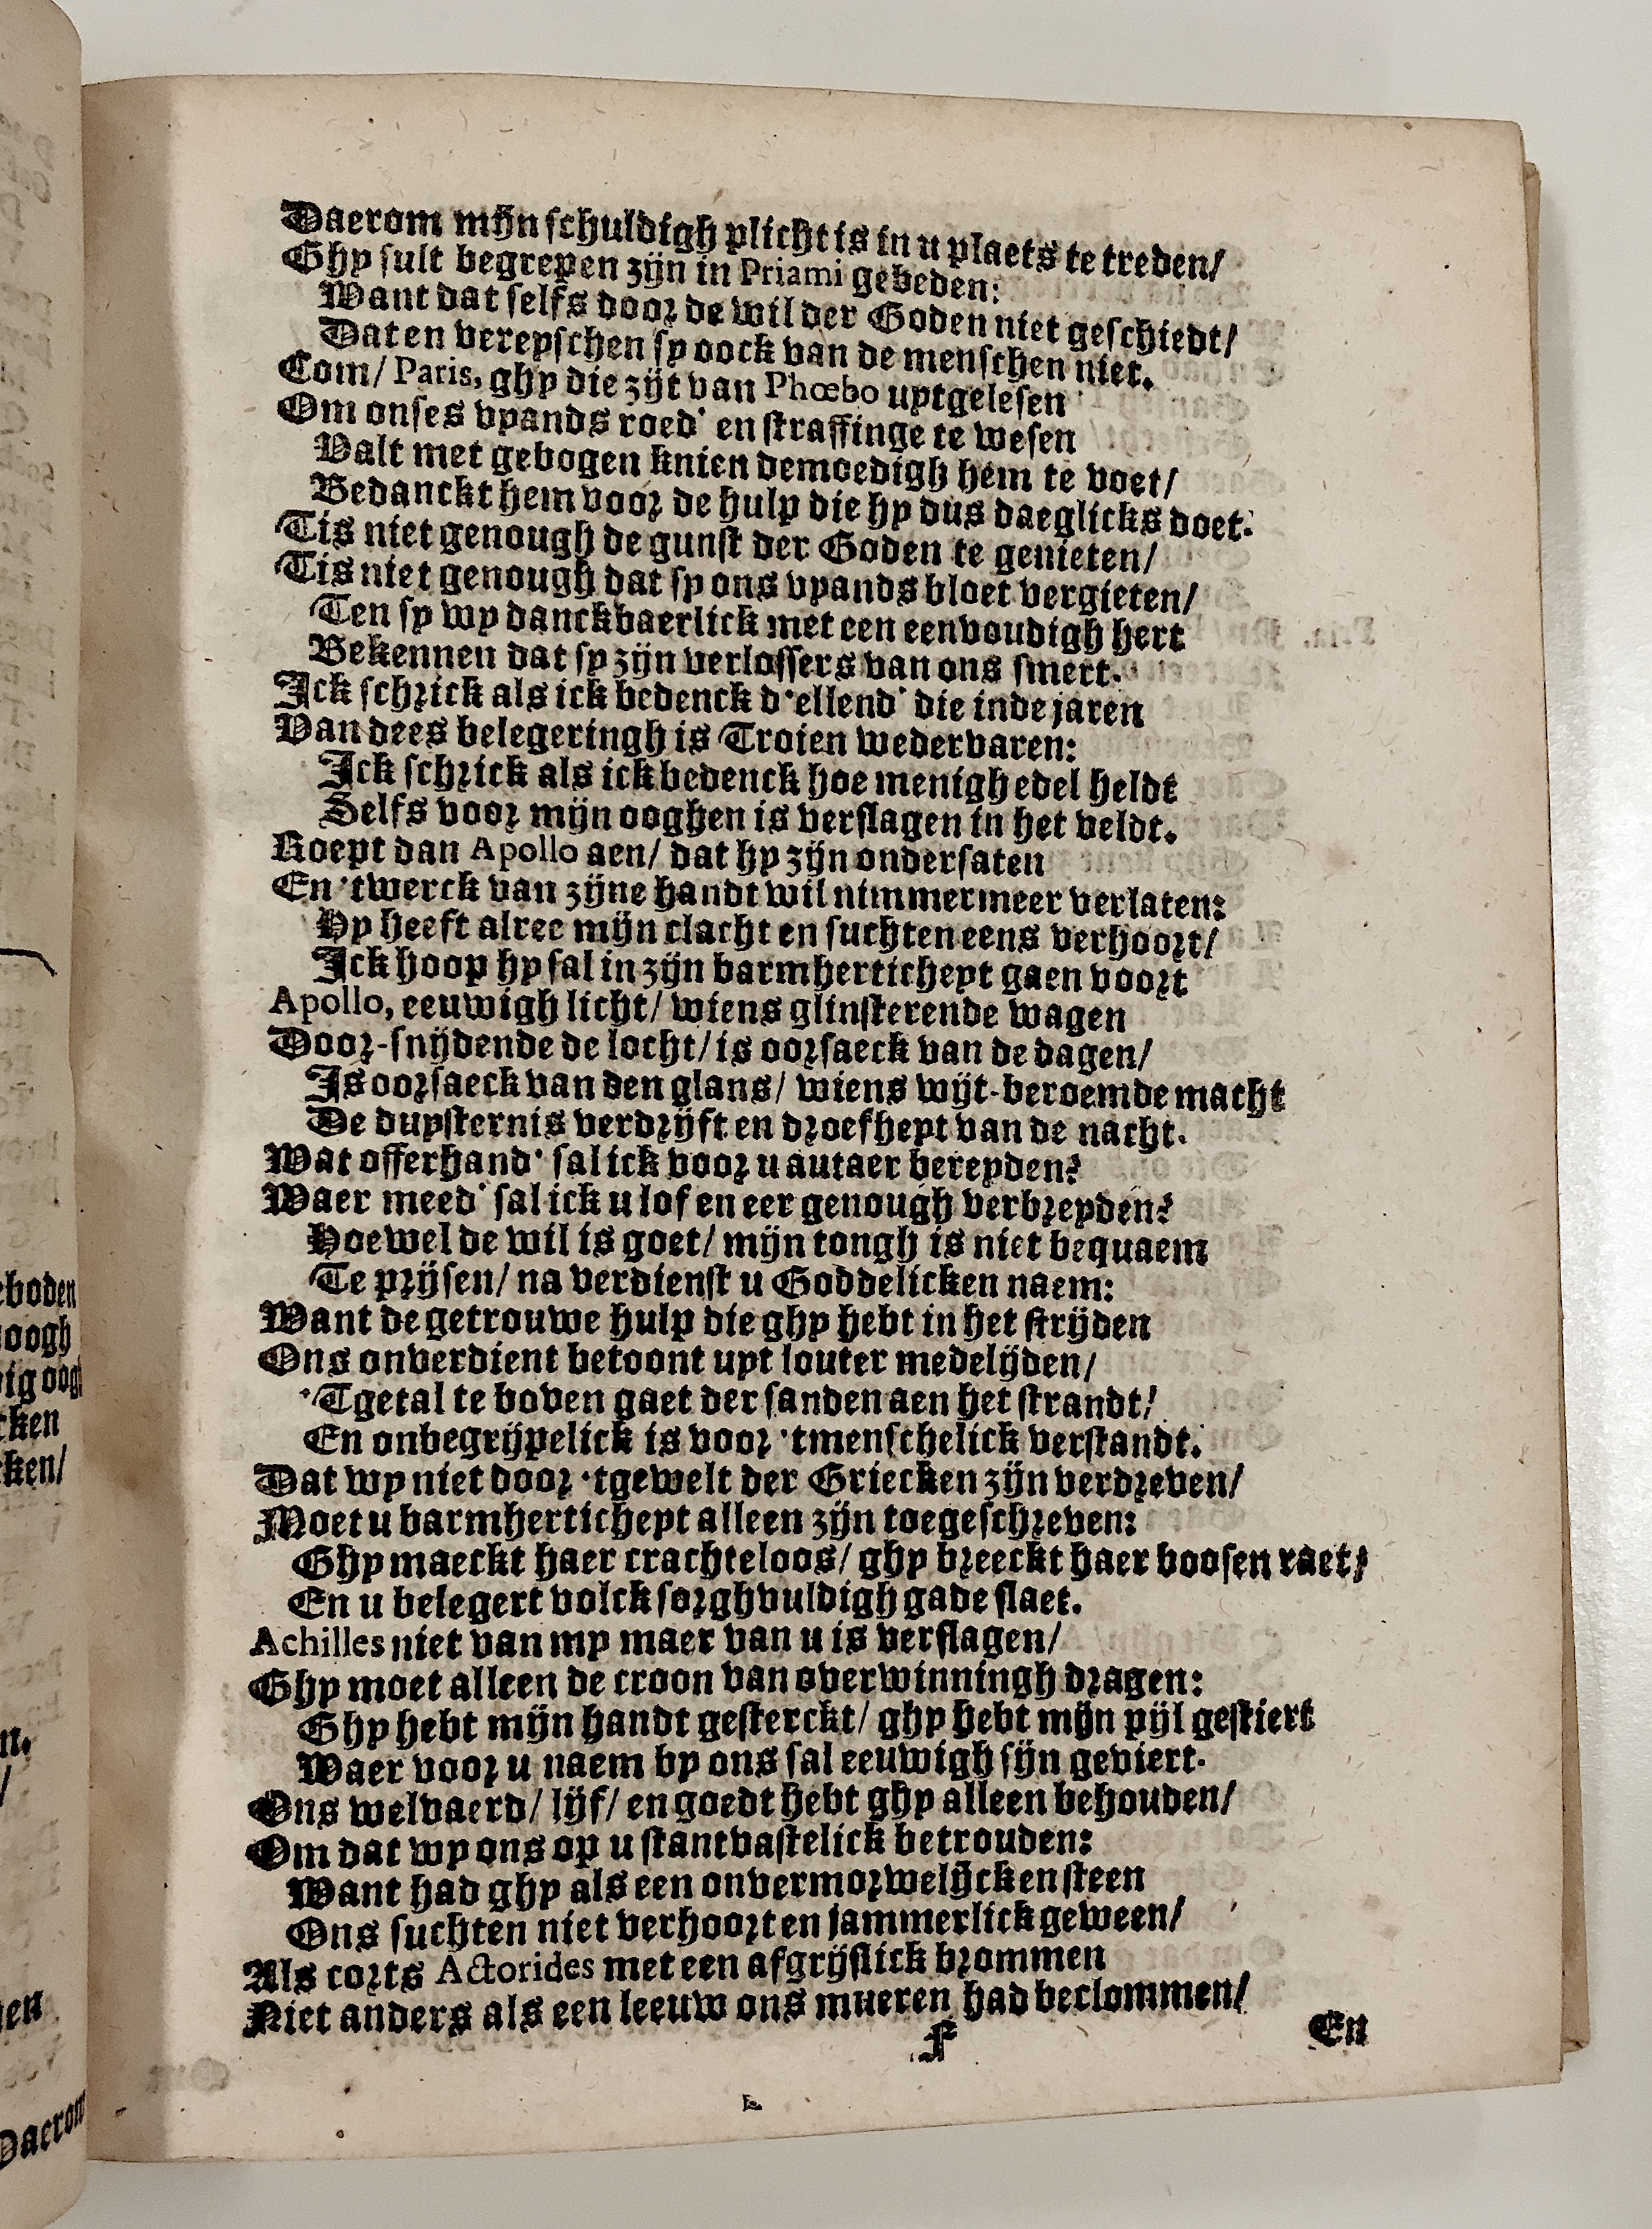 Daerom mijn schuldigh plicht is in u plaets te treden/
Ghy sult begrepen zijn in Priami gebeden:
Want dat selfs door de wil der Goden niet geschiedt/
Dat en vereyschen sy oock van de menschen niet.
Com/ Paris, ghy die zijt van Phœbo uytgelesen
Om onses vyands roed' en straffinge te wesen
Valt met gebogen knien demoedigh hem te voet/
Bedanckt hem voor de hulp die hy dus daeglicks doet.
Tis niet genough de gunst der Goden te genieten/
Tis niet genough dat sy ons vyands bloet vergieten/
Ten sy wy danckbaerlick met een eenvoudigh hert
Bekennen dat sy zijn verlossers van ons smert.
Ick schrick als ick bedenck d'ellend' die inde jaren
Van dees belegeringh is Troien wedervaren:
Ick schrick als ick bedenck hoe menigh edel heldt
Selfs voor mijn ooghen is verslagen in het veldt.
Roept dan Apollo aen/ dat hy zijn ondersaten
En 'twerck van zijne handt wil nimmermeer verlaten:
Hy heeft alree mijn clacht en suchten eens verhoort/
Ick hoop hy sal in zijn barmherticheyt gaen voort
Apollo, eeuwigh licht/ wiens glinsterende wagen
Door-snijdende de locht/ is oorsaeck van de dagen/
Is oorsaeck van den glans/ wiens wijt-beroemde macht
De duysternis verdrijft en droefheyt van de nacht.
Wat offerhand' sal ick voor u autaer bereyden?
Waer meed' sal ick u lof en eer genough verbreyden?
Hoewel de wil is goet/ mijn tongh is niet bequaem
Te prijsen/ na verdienst u Goddelicken naem:
Want de getrouwe hulp die ghy hebt in het strijden
Ons onverdient betoont uyt louter medelijden/
'Tgetal te boven gaet der sanden aen het strandt/
En onbegrijpelick is voor 'tmenschelick verstandt.
Dat wy niet door 'tgewelt der Griecken zijn verdreven/
Moet u barmherticheyt alleen zijn toegeschreven:
Ghy maeckt haer crachteloos/ ghy breeckt haer boosen raet/
En u belegert volck sorghvuldigh gade slaet.
Achilles niet van my maer van u is verslagen/
Ghy moet alleen de croon van overwinningh dragen:
Ghy hebt mijn handt gesterckt/ ghy hebt mijn pijl gestiert
Waer voor u naem by ons sal eeuwigh sijn geviert.
Ons welvaerd/ lijf/ en goedt hebt ghy alleen behouden/
Om dat wy ons op u stantvastelick betrouden:
Want had ghy als een onvermorwelijcken steen
Ons suchten niet verhoort en jammerlick geween/
Als corts Actorides met een afgrijslick brommen
Niet anders als een leeuw ons mueren had beclommen/
F
En
eboden
oogh
ken/
Daerom